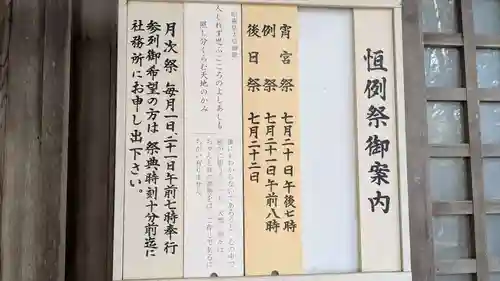 恒例祭御案内
宵宮祭 七月二十日 午後七時
例祭 七月二十一日 午前八時
後日祭 七月二十二日
人しれず思ふこころのよしあしも
照し分くらむ天地のかみ
月次祭 毎月一日、二十一日 午前七時奉行
参列御希望の方は 祭典時刻十分前迄に
社務所にお申し出下さい。